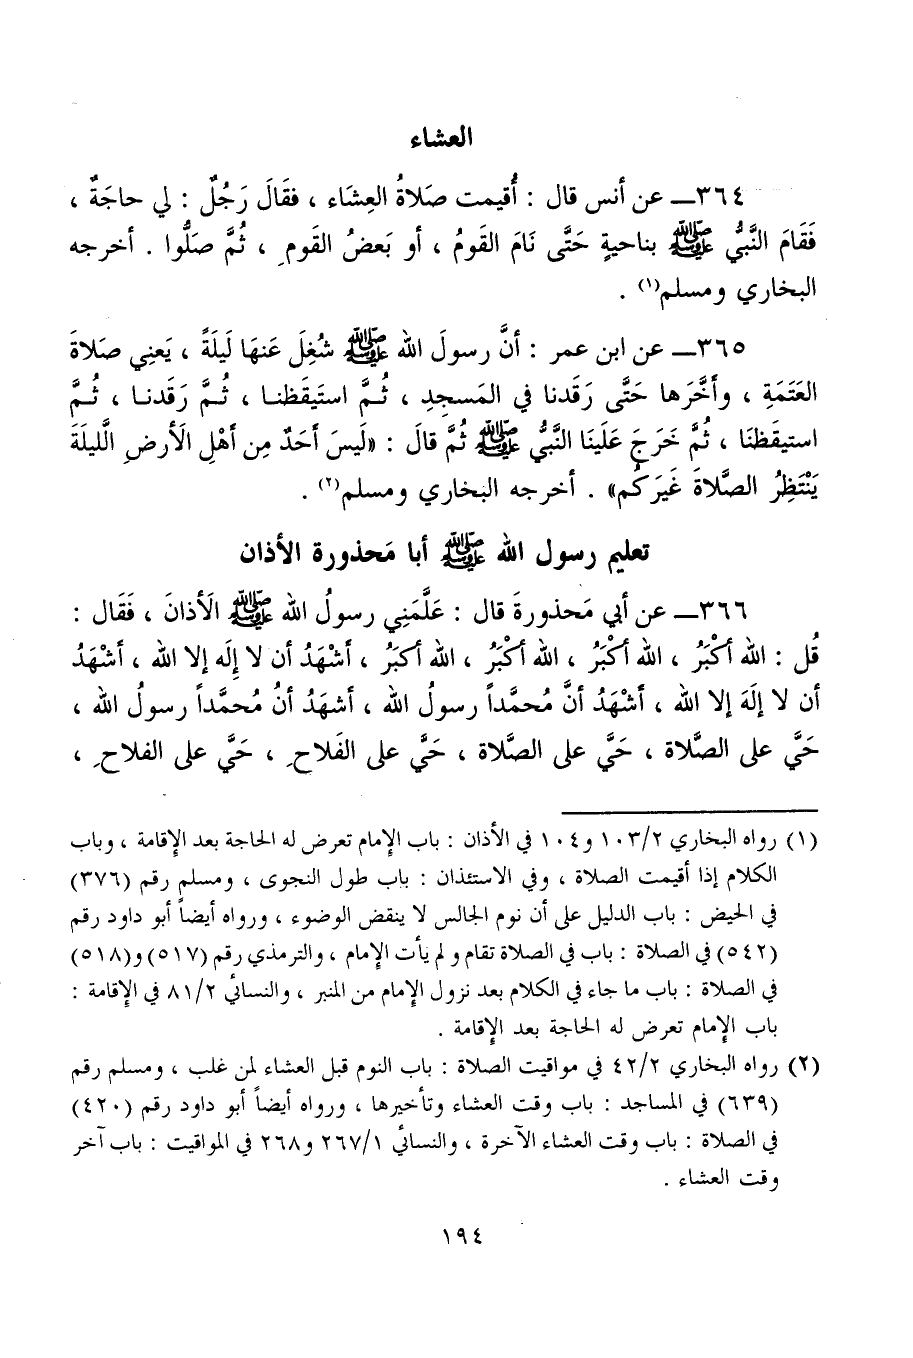 العشاء
٣٦٤ـ عن أنس قال : أُقيمت صَلاةُ العِشَاء ، فقَالَ رَجُلٌ : لي حاجَةٌ ،
فَقَامَ النَّبيُّ ﷺ بناحيةٍ حَتَّى نَامَ القَومُ ، أو بَعضُ القَومِ ، ثُمَّ صَلُّوا . أخرجه
البخاري ومسلم(١) .
٣٦٥ـ عن ابن عمر : أنَّ رسولَ الله ﷺ شُغِلَ عَنهَا لَيلَةً ، يَعنِي صَلاةَ
العَتَمَةِ ، وأَخَّرَها حَتَّى رَقَدنا في المَسجِدِ ، ثُمَّ استَيقَظنا ، ثُمَّ رَقَدنا ، ثُمَّ
استيقَظنَا ، ثُمَّ خَرَجَ عَلَينَا النَّبيُّ ﷺ ثُمَّ قالَ : «لَيسَ أَحَدٌ مِن أهْلِ الَأرضِ الَّليلَةَ
يَنْتَظِرُ الصَّلاةَ غَيرَكُم» . أخرجه البخاري ومسلم(٢) .
تعليم رسول الله ﷺ أبا مَحذورة الأذان
٣٦٦ـ عن أبي مَحذورةَ قال : عَلَّمَنِي رسولُ الله ﷺ الَأذانَ ، فَقَال :
قُل : الله أكْبَرُ ، الله أكْبَرُ ، الله أكْبَرُ ، الله أكبَرُ ، أَشْهَدُ أن لا إلَه إلا الله ، أَشْهَدُ
أن لا إلَهَ إلا الله ، أَشْهَدُ أنَّ مُحمَّداً رسولُ الله ، أشهَدُ أنُ مُحمَّداً رسولُ الله ،
حَيَّ على الصَّلاة ، حَيَّ على الصَّلاة ، حَيَّ على الفَلاحِ ، حَيَّ على الفلاحِ ،
(١) رواه البخاري ١٠٣/٢ و١٠٤ في الأذان : باب الإمام تعرض له الحاجة بعد الإقامة ، وباب
الكلام إذا أقيمت الصلاة ، وفي الاستئذان : باب طول النجوى ، ومسلم رقم (٣٧٦)
في الحيض : باب الدليل على أن نوم الجالس لا ينقض الوضوء ، ورواه أيضاً أبو داود رقم
(٥٤٢) في الصلاة : باب في الصلاة تقام ولم يأت الإمام ، والترمذي رقم (٥١٧) و(٥١٨)
في الصلاة : باب ما جاء في الكلام بعد نزول الإمام من المنبر ، والنسائي ٨١/٢ في الإقامة :
باب الإمام تعرض له الحاجة بعد الإقامة .
(٢) رواه البخاري ٤٢/٢ في مواقيت الصلاة : باب النوم قبل العشاء لمن غلب ، ومسلم رقم
(٦٣٩) في المساجد : باب وقت العشاء وتأخيرها ، ورواه أيضاً أبو داود رقم (٤٢٠)
في الصلاة : باب وقت العشاء الآخرة ، والنسائي ٢٦٧/١ و٢٦٨ في المواقيت : باب آخر
وقت العشاء .
١٩٤